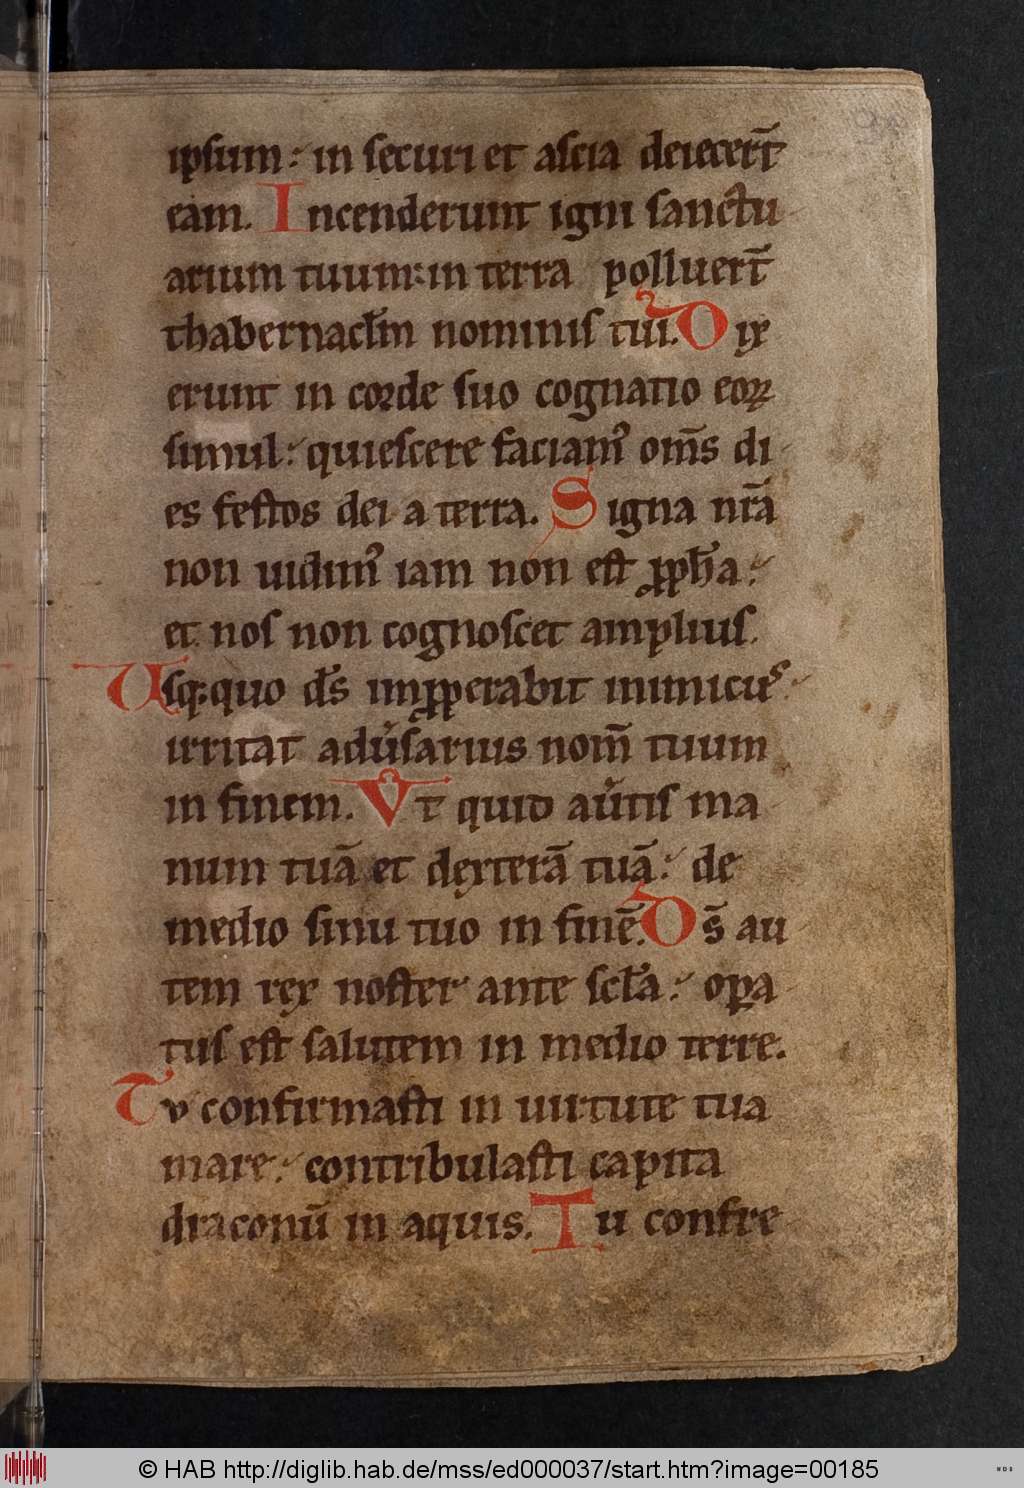 ipsum: in securi et ascia deiecer̄t
eam. Incenderunt igni sanctu
arium tuum: in terra polluer̄t
thabernacl̄m nominis tui. Dix
erunt in corde suo cognatio eoꝝ
simul: quiescere faciamꝰ om̄s di
es festos dei a terra. Signa nr̄a
non uidimꝰ iam non est ꝓph̄a:
et nos non cognoscet amplius.
Usq; quo d̄s imꝓperabit inimicus:
irritat adu̾sarius nom̄ tuum
in finem. Vt quid au̾tis ma
num tuā et dexterā tuā: de
medio sinu tuo in finē. Ds̄ au
tem rex noster ante scl̄a: oꝑa
tus est salutem in medio terre.
Tv confirmasti in uirtute tua
mare: contribulasti capita
draconū in aquis. Tu confre
© HAB http://diglib.hab.de/mss/ed000037/start.htm?image=00185